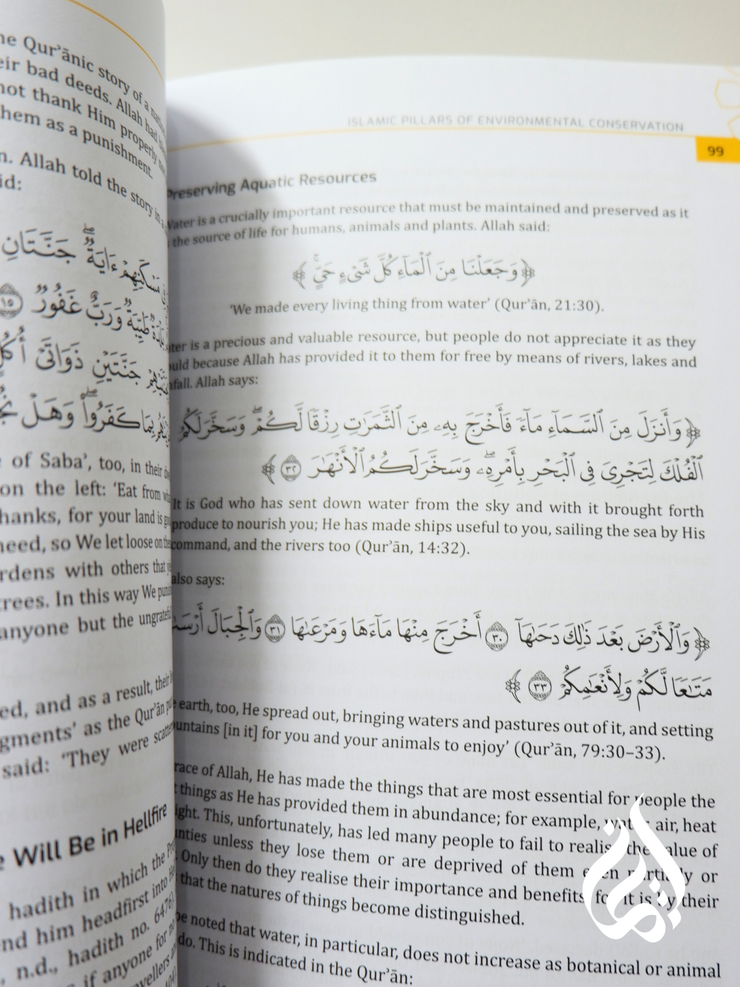 he Qur'ānic story of a
eir bad deeds. Allah had
not thank Him properly
them as a punishment.
n. Allah told the story in a
id:
سَكَنِهِمْ ءَايَةٌ ۖ جَنَّتَانِ
طَيِّبَةٌ وَرَبٌّ غَفُورٌ ١٥
جَنَّتَيْنِ ذَوَاتَىْ أُكُلٍ
بِمَا كَفَرُوا۟ ۖ وَهَلْ
of Saba', too, in their
on the left: 'Eat from
hanks, for your land is
need, so We let loose on the
rdens with others that
trees. In this way We
anyone but the ungrateful
ed, and as a result, their
gments' as the Qur'ān
said: 'They were
Will Be in Hellfire
hadith in which the
nd him headfirst into
, n.d., hadith no. 6476)
if anyone for
ISLAMIC PILLARS OF ENVIRONMENTAL CONSERVATION
99
Preserving Aquatic Resources
Water is a crucially important resource that must be maintained and preserved as it
the source of life for humans, animals and plants. Allah said:
﴿وَجَعَلْنَا مِنَ ٱلْمَآءِ كُلَّ شَىْءٍ حَىٍّ﴾
'We made every living thing from water' (Qur'ān, 21:30).
ter is a precious and valuable resource, but people do not appreciate it as they
uld because Allah has provided it to them for free by means of rivers, lakes and
nfall. Allah says:
﴿وَأَنزَلَ مِنَ ٱلسَّمَآءِ مَآءً فَأَخْرَجَ بِهِۦ مِنَ ٱلثَّمَرَٰتِ رِزْقًا لَّكُمْ ۖ وَسَخَّرَ لَكُمُ
ٱلْفُلْكَ لِتَجْرِىَ فِى ٱلْبَحْرِ بِأَمْرِهِۦ ۖ وَسَخَّرَ لَكُمُ ٱلْأَنْهَٰرَ ٣٢﴾
It is God who has sent down water from the sky and with it brought forth
produce to nourish you; He has made ships useful to you, sailing the sea by His
command, and the rivers too (Qur'ān, 14:32).
also says:
﴿وَٱلْأَرْضَ بَعْدَ ذَٰلِكَ دَحَىٰهَآ ٣٠ أَخْرَجَ مِنْهَا مَآءَهَا وَمَرْعَىٰهَا ٣١ وَٱلْجِبَالَ أَرْسَ
مَتَٰعًا لَّكُمْ وَلِأَنْعَٰمِكُمْ ٣٣﴾
e earth, too, He spread out, bringing waters and pastures out of it, and setting
ountains [in it] for you and your animals to enjoy' (Qur'ān, 79:30–33).
race of Allah, He has made the things that are most essential for people the
t things as He has provided them in abundance; for example, water, air, heat
ght. This, unfortunately, has led many people to fail to realise the value of
nties unless they lose them or are deprived of them even partially or
. Only then do they realise their importance and benefits, for it is by their
that the natures of things become distinguished.
be noted that water, in particular, does not increase as botanical or animal
do. This is indicated in the Qur'ān: